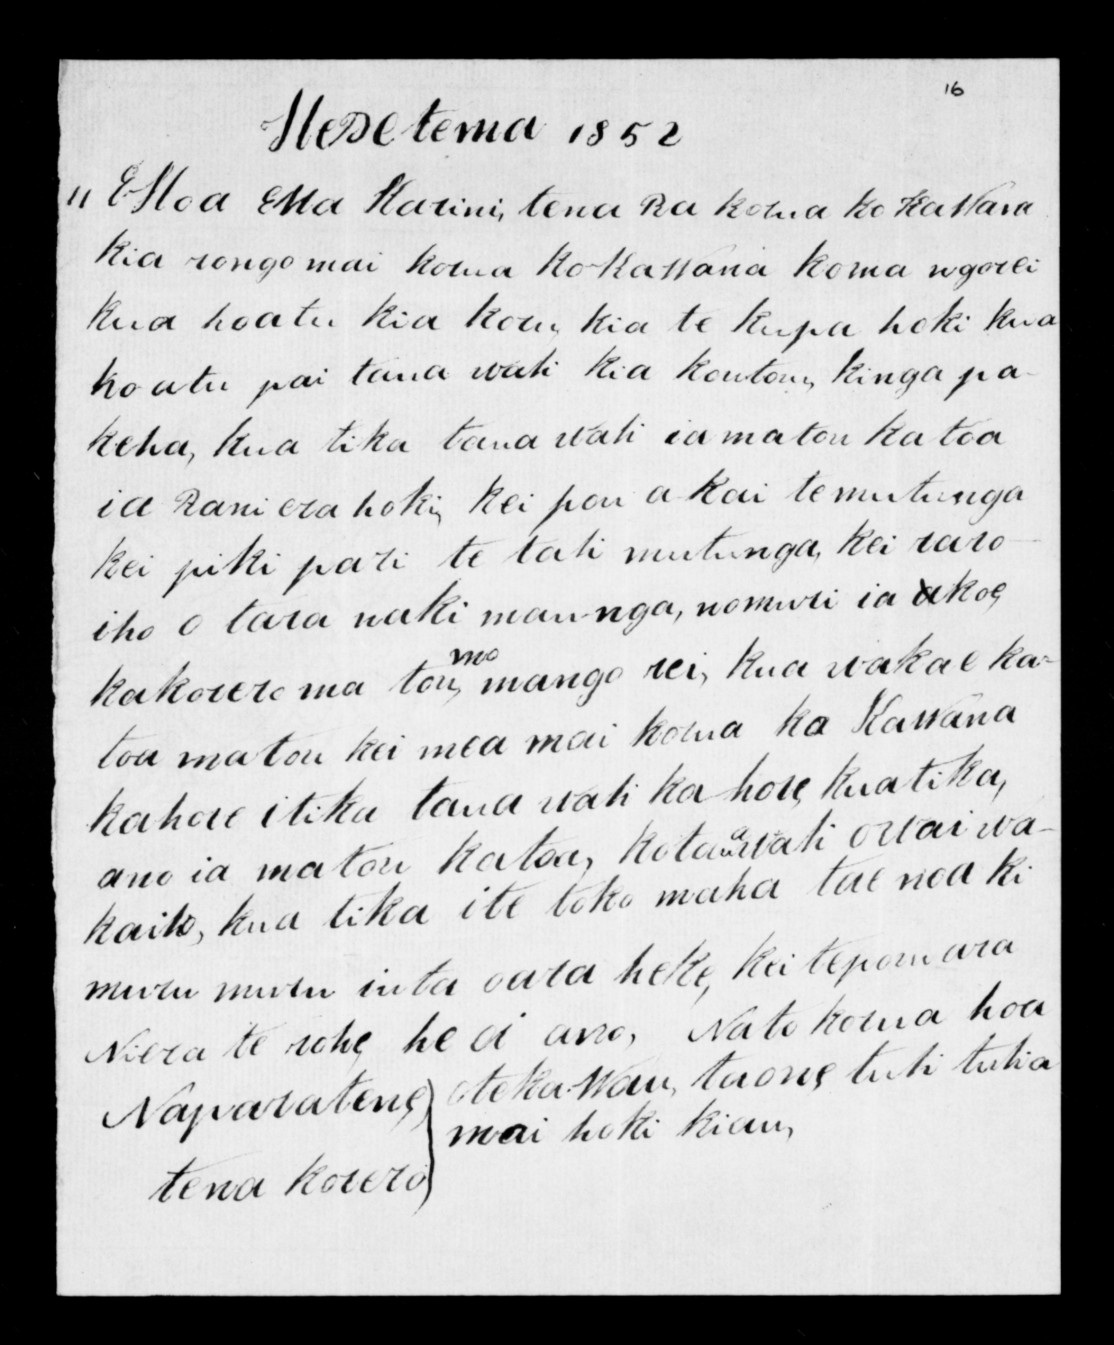 16
Hepetema 1852
" E Hoa E Ma Karini, tena Ra korua ko kaWana
kia rongo mai korua ko KaWana koma ngorei
kua hoatu kia koru, kia te kupa hoki kua
ho atu pai tana wati kia koutou, kinga pa-
keha, kua tika tana wati ia matou katoa
ia Rani era hoki, kei pou a kai te mutunga
kei piki pari te tahi mutunga, kei raro
iho o tara naki maunga, nomuri ia koe,
kakorero ma tou, mo mango rei, kua wakae ka-
toa matou kei mea mai korua ko KaWana
kahore i tika tana wati ka hore, kua tika,
ano ia matou katoa, kotaua wati owai wa-
kaiho, kua tika i te toko maha tae noa ki
muru muru iuta oura heke, kei tepou ara
Niera te rohe he oi ano, Nato korua hoa
Naparatene, ) oteka Wau, taone, tuhi tuhia
mai hoki kiau,
tena korero )